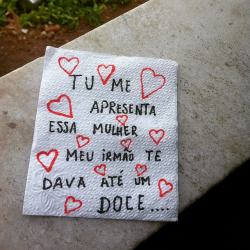 TU ME
APRESENTA
ESSA MULHER
MEU IRMÃO TE
DAVA ATÉ UM
DOCE....